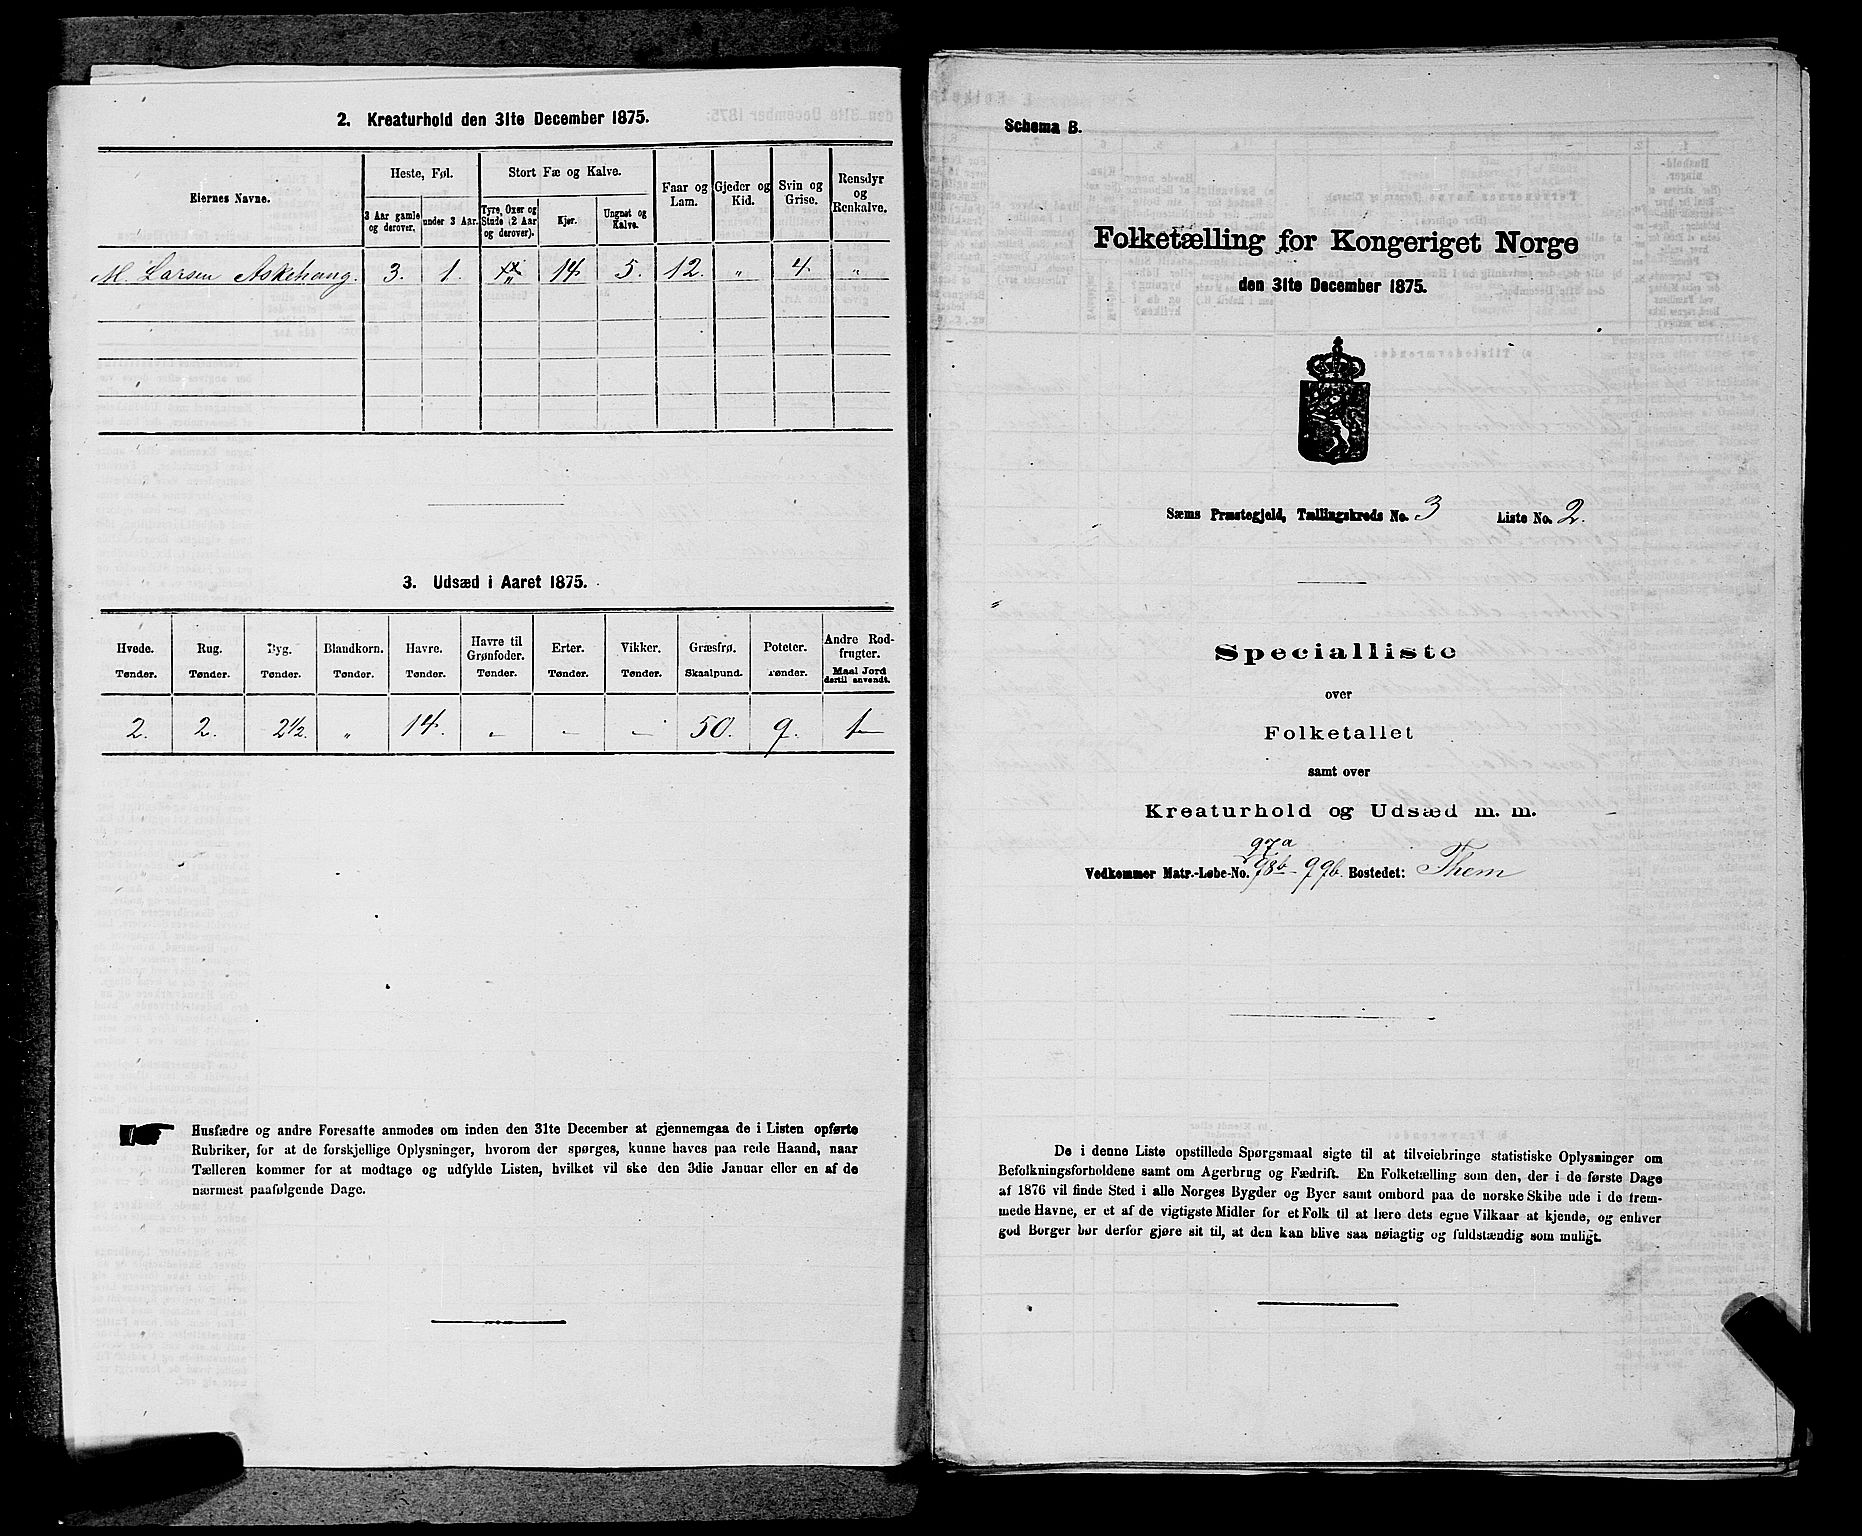 2. Kreaturhold den 31te December 1875.
Eiernes Navne.
Heste, Føl.
Stort Fæ og Kalve.
Faar og Lam.
Gjeder og Kid.
Svin og Grise.
Rensdyr og Renkalve.
3 Aar gamle og derover.
under 3 Aar.
Tyre, Oxer og Stude (2 Aar og derover).
Kjør.
Ungnøt og Kalve.
M. Larsen Askehaug. 3. 1. " 14. 5. 12. " 4. "
3. Udsæd i Aaret 1875.
Hvede. Rug. Byg. Blandkorn. Havre. Havre til Grønfoder. Erter. Vikker. Græsfrø. Poteter. Andre Rodfrugter.
Tønder. Tønder. Tønder. Tønder. Tønder. Tønder. Tønder. Tønder. Skaalpund. Tønder. Maal Jord dertil anvendt.
2. 2. 2 1/2. " 14. " " " 50. 9. 1
Husfædre og andre Foresatte anmodes om inden den 31te December at gjennemgaa de i Listen opførte
Rubriker, for at de forskjellige Oplysninger, hvorom der spørges, kunne haves paa rede Haand, naar
Tælleren kommer for at modtage og udfylde Listen, hvilket vil ske den 3die Januar eller en af de
nærmest paafølgende Dage.
Schema B.
Folketælling for Kongeriget Norge
den 31te December 1875.
Sæms Præstegjeld, Tællingskreds No. 3 Liste No. 2.
Specialliste
over
Folketallet
samt over
Kreaturhold og Udsæd m. m.
97a
Vedkommer Matr.-Løbe-No. 98b - 99b. Bostedet: Them
De i denne Liste opstillede Spørgsmaal sigte til at tilveiebringe statistiske Oplysninger om
Befolkningsforholdene samt om Agerbrug og Fædrift. En Folketælling som den, der i de første Dage
af 1876 vil finde Sted i alle Norges Bygder og Byer samt ombord paa de norske Skibe ude i de frem-
mede Havne, er et af de vigtigste Midler for et Folk til at lære dets egne Vilkaar at kjende, og enhver
god Borger bør derfor gjøre sit til, at den kan blive saa nøiagtig og fuldstændig som muligt.